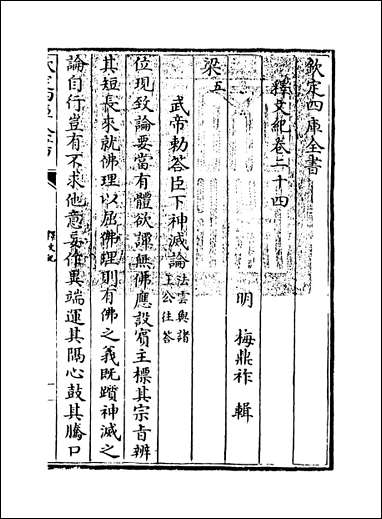 欽定四庫全書
釋文紀卷二十四
明 梅鼎祚 輯
梁五
武帝勅答臣下神滅論法雲與諸王公往答
位現致論要當有體欲譚無佛應設賓主標其宗旨辨
其短長來就佛理以屈佛理則有佛之義既躓神滅之
論自行豈有不求他意妄作異端運其隔心鼓其騰口
釋文紀